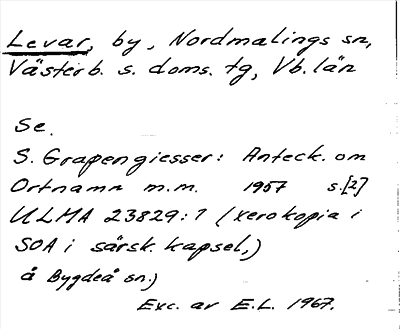 Levar, by, Nordmalings sn,
Västerb. s. doms. tg, Vb. län
Se.
S. Grapengiesser: Anteck. om
Ortnamn m.m. 1957 s.[2]
ULMA 23829:1 (xerokopia i
SOA i särsk. kapsel,)
å Bygdeå sn.)
Exc. av E.L. 1967.